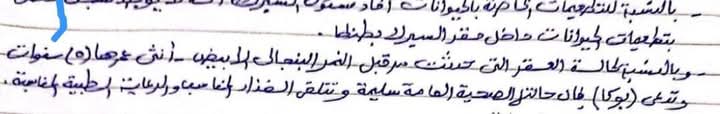 - بالنسبة للتطعيمات الخاصة بالحيوانات أفاد مسئول السيرك
بتطعيمات الحيوانات داخل مقر السيرك بطنطا.
- وبالنسبة لحالة العقر التى حدثت من قبل النمر البنجالى الابيض - أنثى عمرها (٥) سنوات
وتدعى (بوكا) فإن حالتها الصحية العامة سليمة وتتلقى الغذاء المناسب والرعاية الطبية المناسبة.